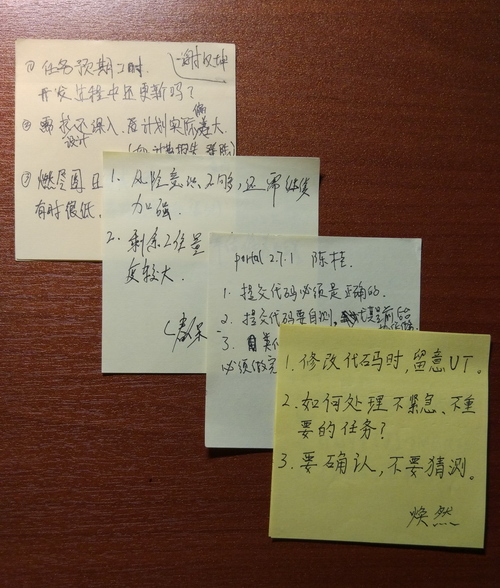 ① 任务预期工时
开发过程中还更新吗？
② 需求还深入，原计划实际偏差大
设计
③ 燃尽图
有时很低，
1. 风险意识不够，还需继续
加强.
2. 剩余工作量
较大.
春保
portal 2.7.1 陈桂.
1. 提交代码必须是正确的.
2. 提交代码要自测，
3.
必须做完
1. 修改代码时，留意UT。
2. 如何处理不紧急、不重
要的任务？
3. 要确认，不要猜测。
焕然